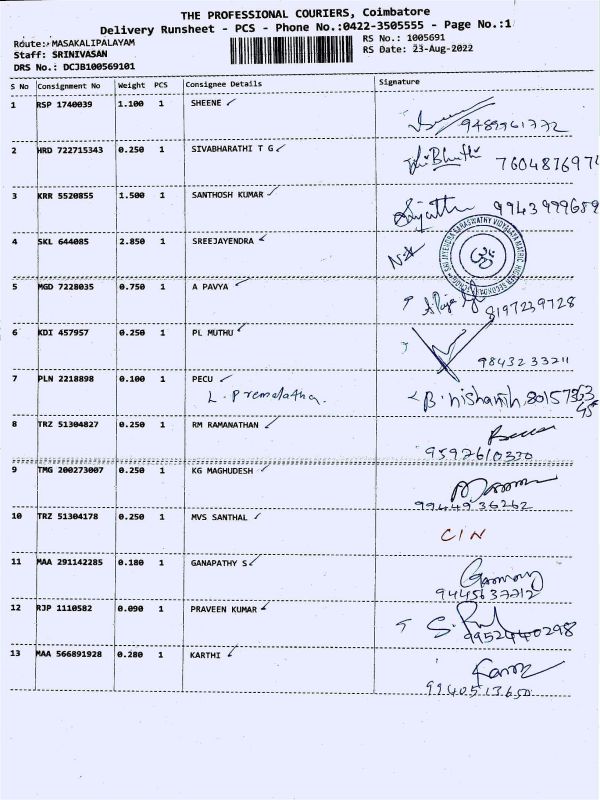 THE PROFESSIONAL COURIERS, Coimbatore
Delivery Runsheet - PCS - Phone No.:0422-3505555 - Page No.:1
Route:- MASAKALIPALAYAM
RS No.: 1005691
Staff: SRINIVASAN
RS Date: 23-Aug-2022
DRS No.: DCJB100569101
S No Consignment No Weight PCS Consignee Details Signature
1 RSP 1740039 1.100 1 SHEENE
9489961772
2 HRD 722715343 0.250 1 SIVABHARATHI T G
760487697
3 KRR 5520855 1.500 1 SANTHOSH KUMAR
9943999689
4 SKL 644085 2.850 1 SREEJAYENDRA
5 MGD 7228035 0.750 1 A PAVYA
8197239728
6 KDI 457957 0.250 1 PL MUTHU
9843233211
7 PLN 2218898 0.100 1 PECU
L. Premalatha.
B. Nishanth, 801573
8 TRZ 51304827 0.250 1 RM RAMANATHAN
9597610330
9 TMG 200273007 0.250 1 KG MAGHUDESH
9944936262
10 TRZ 51304178 0.250 1 MVS SANTHAL
CIN
11 MAA 291142285 0.180 1 GANAPATHY S
9445637712
12 RJP 1110582 0.090 1 PRAVEEN KUMAR
9952440298
13 MAA 566891928 0.280 1 KARTHI
9940513650